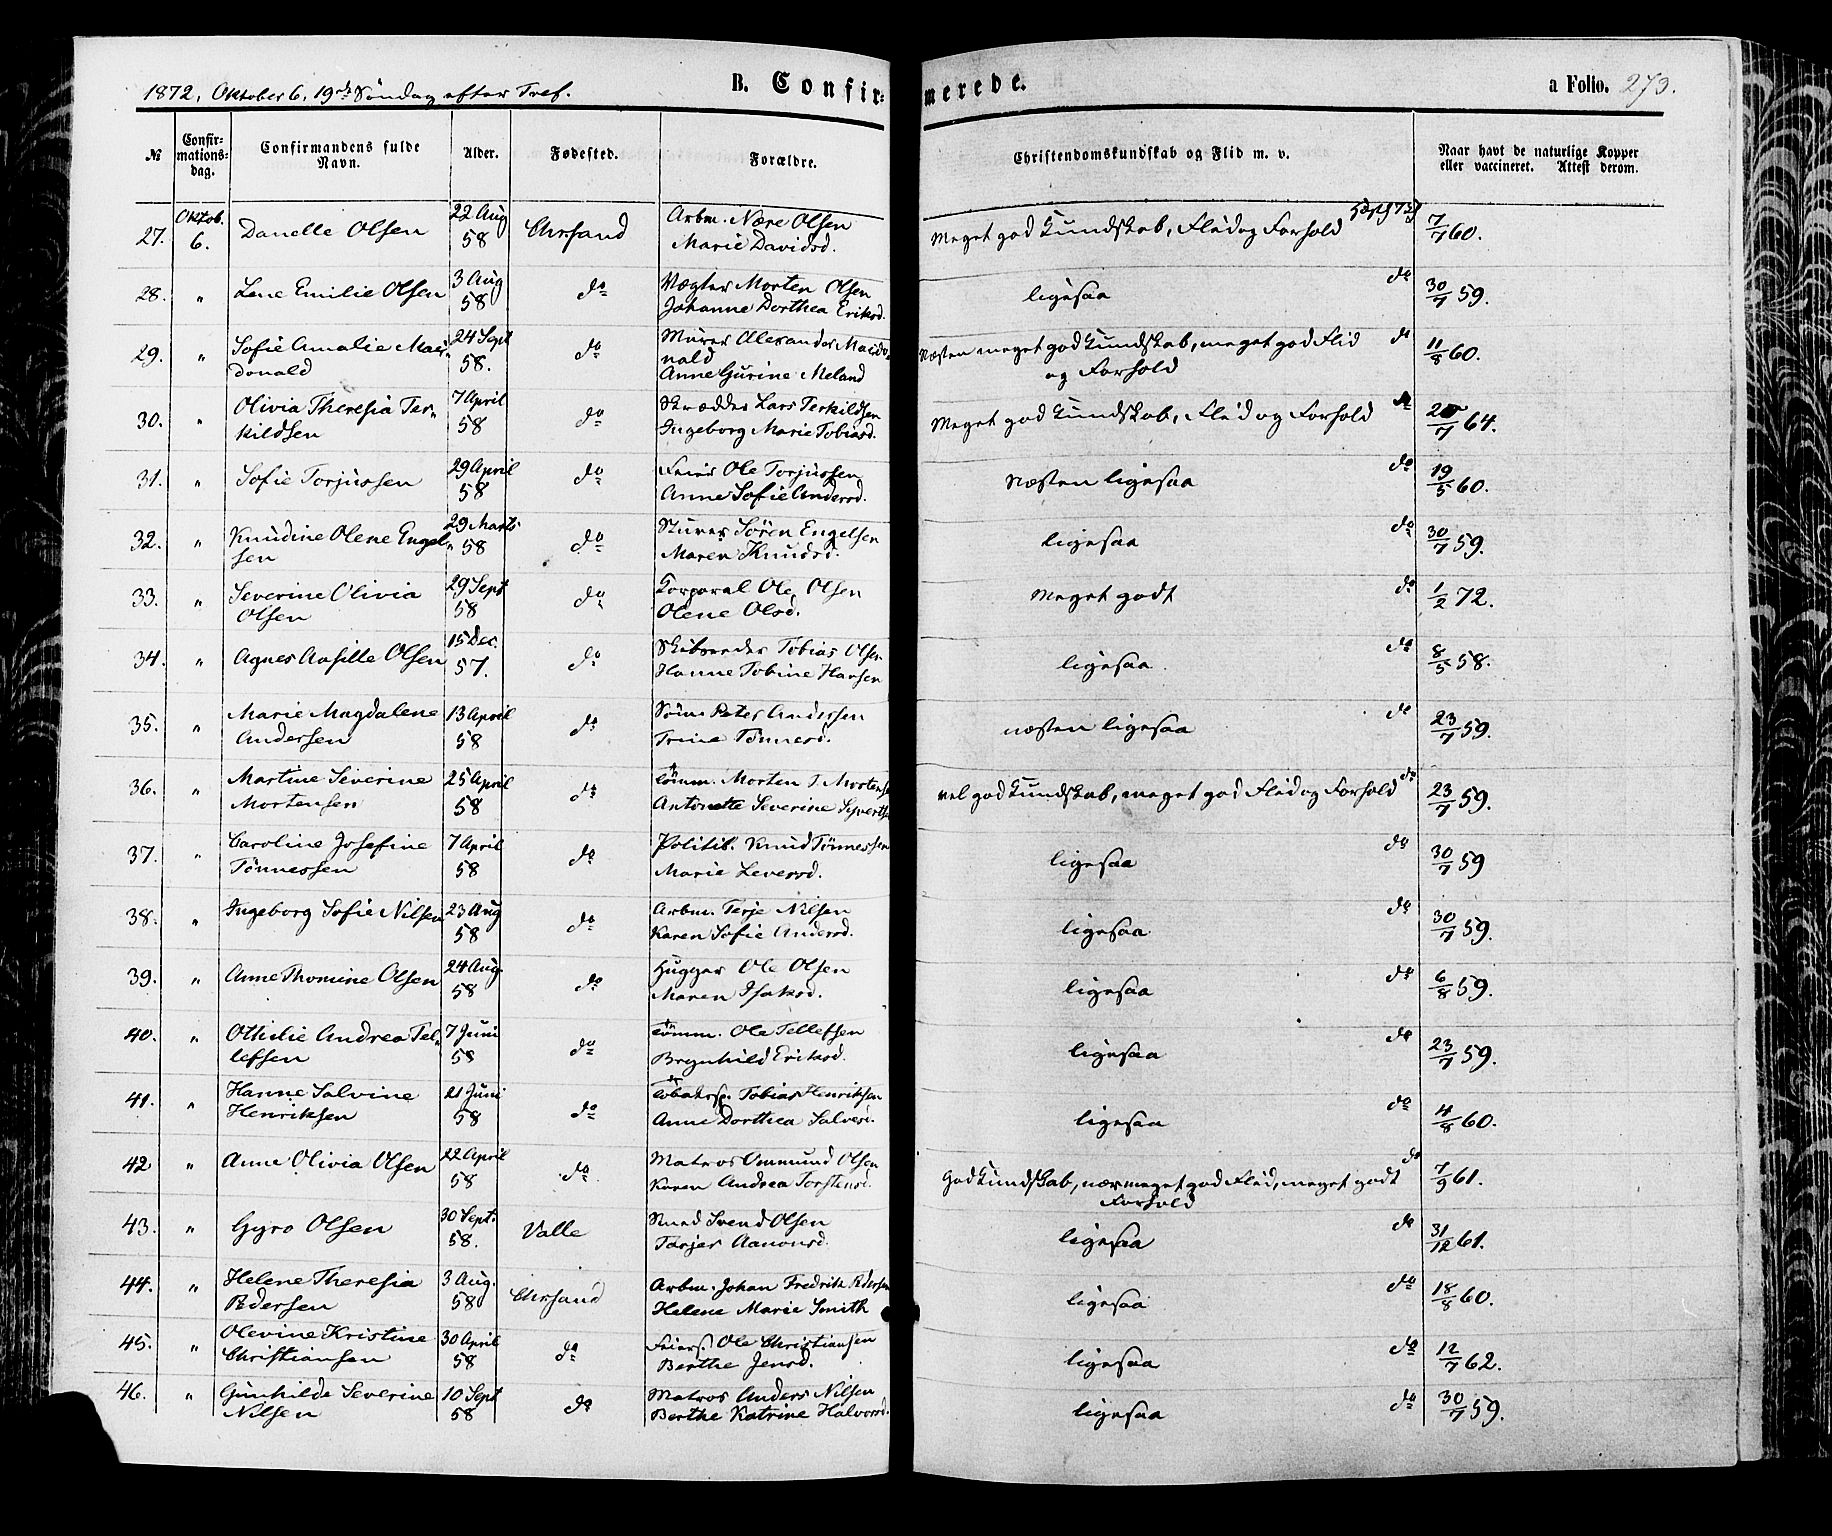 1872, Oktober 6, 19de Søndag efter Tref. B. Confirmerede. a Folio. 273.
№ Confirmationsdag. Confirmandens fulde Navn. Alder. Fødested. Forældre. Christendomskundskab og Flid m. v. Naar havt de naturlige Kopper eller vaccineret. Attest derom.
27. Oktob. 6. Danelle Olsen 22 Aug 58 Chrsand Arbm. Nære Olsen Marie Davidsd. Meget god Kundskab, Flid og Forhold 7/7 60.
28. " Lene Emilie Olsen 3 Aug 58 do Vægter Morten Olsen Johanne Dorthea Eriksd. ligesaa do 30/7 59.
29. " Sofie Amalie Macdonald 24 Sept 58. do Murer Alexander Macdonald Anne Gurine Meland Næsten meget god Kundskab, meget god Flid og Forhold do 11/8 60.
30. " Olivia Theresia Terkildsen 7 April 58 do Skrædder Lars Terkildsen Ingeborg Marie Tobiasd. Meget god Kundskab, Flid og Forhold do /7 64.
31. " Sofie Torjussen 29 April 58 do Ole Torjussen Anne Sofie Andersd. Næsten ligesaa do 19/5 60.
32. " Knudine Olene Engelsen 29 Marts 58 do Stuver Sören Engelsen Maren Knudsd. ligesaa do 30/7 59.
33. " Severine Olivia Olsen 29 Sept 58 do Corporal Ole Olsen Olene Olsd. Meget godt do 1/2 72.
34. " Agnes Aasille Olsen 15 Dec. 57. do Tobias Olsen Hanne Tobine Hansen ligesaa. do 8/5 58.
35. " Marie Magdalene Andersen 13 April 58 do Søm. Peter Andersen Trine Tønnesd. næsten ligesaa do 23/7 59.
36. " Martine Severine Mortensen 25 April 58 do Tömm. Morten T Mortensen Antonette Severine vel god Kundskab, meget god Flid og Forhold do 23/7 59.
37. " Caroline Josefine Tönnessen 7 April 58 do Politib. Knud Tönnessen Marie Leversd. ligesaa do 30/7 59
38. " Ingeborg Sofie Nilsen 23 Aug 58 do Arbm. Terje Nilsen Karen Sofie Andersd. ligesaa do 30/7 59.
39. " Anne Thomine Olsen 24 Aug. 58 do Hugger Ole Olsen Maren Isaksd. ligesaa do 6/8 59.
40. " Ottilie Andrea Tellefsen 7 Juni 58 do Tömm. Ole Tellefsen Brynhild Eriksd. ligesaa do 23/7 59.
41. " Hanne Salvine Henriksen 21 Juni 58 do Tobaksp. Tobias Henriksen Anne Dorthea Salvesd. ligesaa do 4/8 60.
42 " Anne Olivia Olsen 22 April 58 do Matros Ommund Olsen Karen Andrea Torstensd. God Kundskab, nær meget god Flid, meget godt Forhold do 7/9 61.
43. " Gyro Olsen 30 Sept. 58. Valle Smed Svend Olsen Torjer Aanonsd. ligesaa do 31/12 61.
44. " Helene Theresia Pedersen 3 Aug. 58 Chrsand Arbm. Johan Fredrik Pedersen Helene Marie Smith ligesaa do 18/8 60.
45. " Olevine Kristine Christiansen 30 April 58 do Ole Christiansen Berthe Jensd. ligesaa do 12/7 62.
46. " Gunhilde Severine Nilsen 10 Sept 58 do Matros Anders Nilsen Berthe Katrine Halvorsd. ligesaa do 30/7 59.